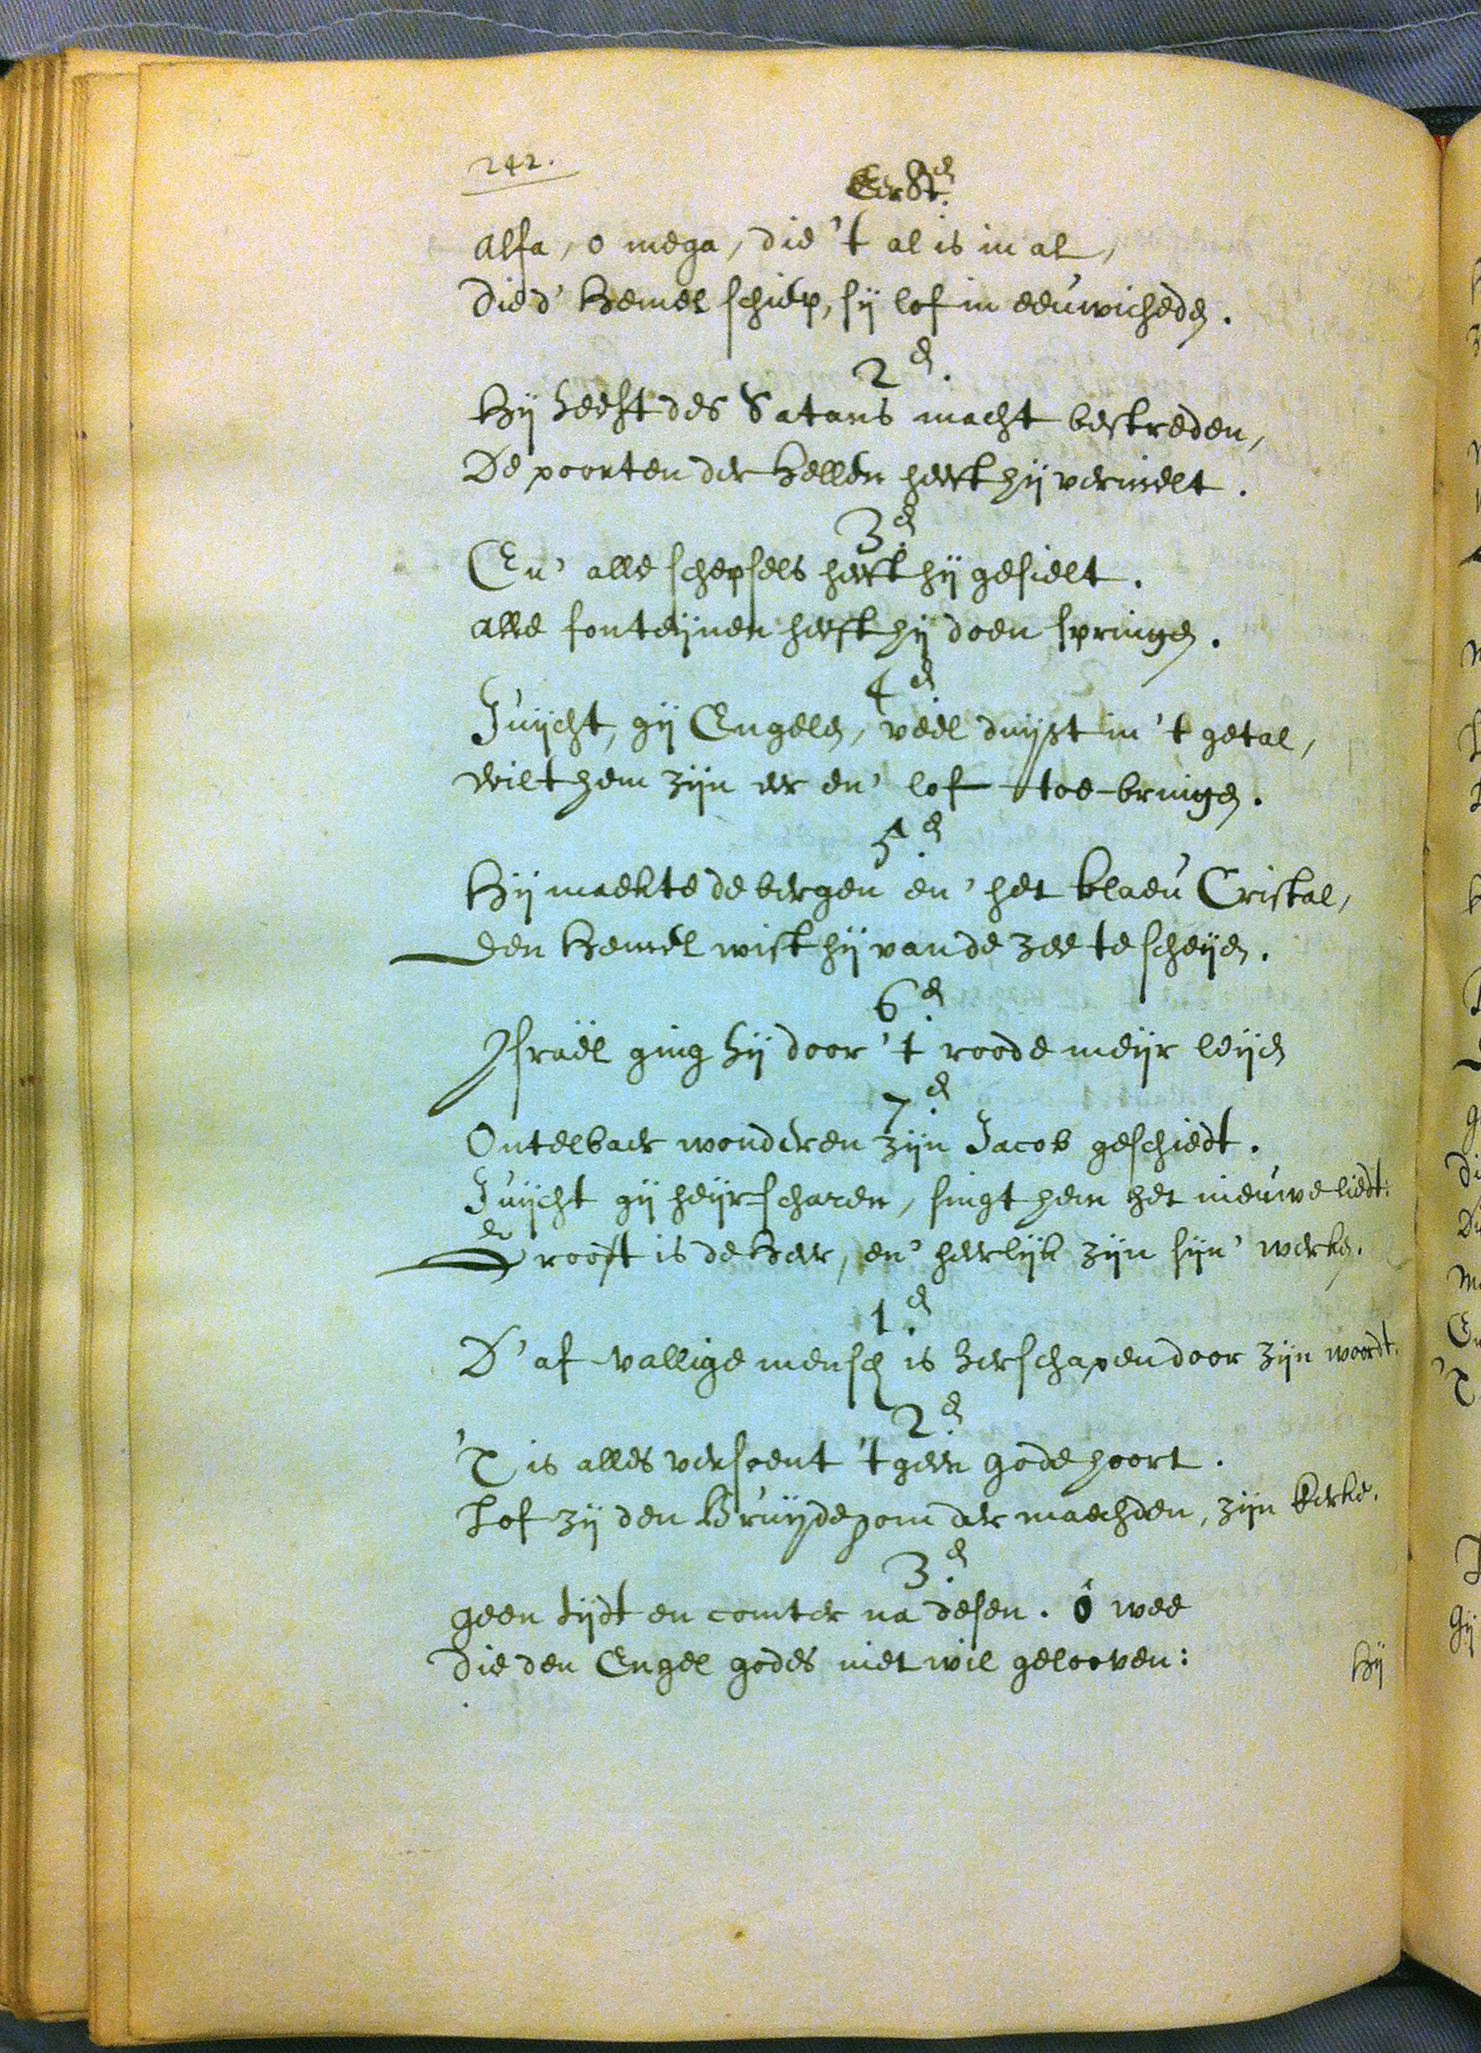 242.
Eerst.
Alfa, o mega, die 't al is in al,
Die d' Hemel schiep, sij lof in eeuwicheden.
2e.
Hij heeft des Satans macht bestreden,
De poorten der Hellen heeft hij vernielt.
3e.
En' alle schepsels heeft hij gesielt.
Alle fonteijnen heeft hij doen springen.
4e.
Juijcht, gij Engelen, veel duijst in 't getal,
Wilt hem zijn eer en' lof toe-bringen.
5e.
Hij maekte de bergen en' het klaeu Cristal,
Den Hemel wist hij van de zee te scheijen.
6e.
Israël ging hij door 't roode meijr leijen
7e.
Ontelbaer wonderen zijn Jacob geschiedt.
Juijcht gij heijr-scharen, singt hem het nieuwe liedt:
Groost is de Heer, en' heerlijk zijn sijn' werken.
1e.
D' af-vallige mensch is herschapen door zijn woordt.
2e.
'T is alles versoent 't geen gode hoort.
Lof zij den Bruijdegom der maechden, zijn kerke.
3e.
geen tijdt en comter na desen. ó wee
Die den Engel godes niet wil gelooven:
Hij